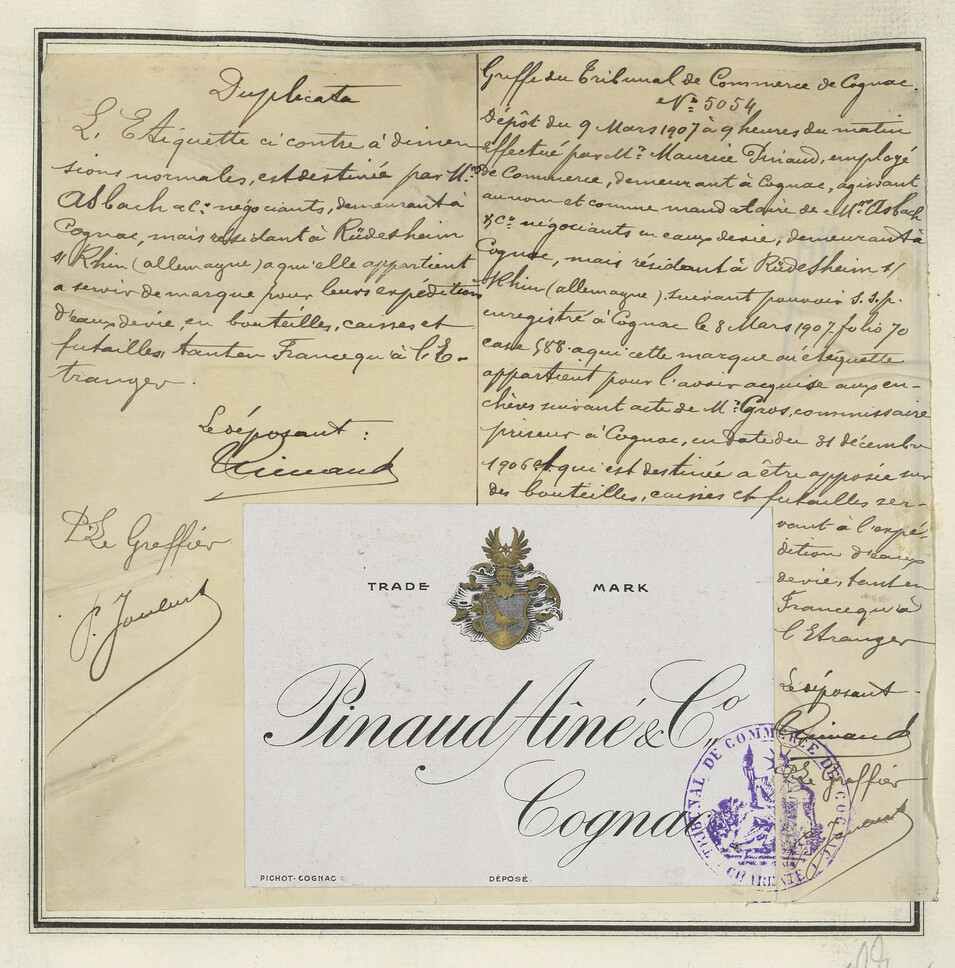 Duplicata
L'Etiquette ci contre à dimen
sions normales, est destinée par M.rs
Asbach & C.o négociants, demeurant à
Cognac, mais résidant à Rüdesheim
s/ Rhin (allemagne) a qu'elle appartient
a servir de marque pour leurs expéditions
d'eaux de vie, en bouteilles, caisses et
futailles, tant en France qu'à l'E-
tranger.
Le déposant :
Pinaud
P. Le Greffier
Greffe du Tribunal de Commerce de Cognac.
No 5054
Dépôt du 9 Mars 1907 à 9 heures du matin
effectué par Mr. Maurice Pinaud, employé
de Commerce, demeurant à Cognac, agissant
au nom et comme mandataire de Mrs Asbach
& Co négociants en eaux de vie, demeurant à
Cognac, mais résidant à Rüdesheim s/
Rhin (allemagne), suivant pouvoir s.s.p.
enregistré à Cognac le 8 Mars 1907 folio 70
case 588. a qui cette marque ou étiquette
appartient pour l'avoir acquise aux en-
chères suivant acte de Mr. Gros, commissaire
priseur à Cognac, en date du 31 décembre
1906 et qui est destinée a être apposée sur
des bouteilles, caisses et futailles ser-
vant à l'expé-
dition d'eaux
de vie, tant en
France qu'à
l'Etranger
Le déposant
Pinaud
P. Le Greffier
TRADE MARK
Pinaud Aîné & Co.,
Cognac
PICHOT-COGNAC DÉPOSÉ.
TRIBUNAL DE COMMERCE DE COGNAC
CHARENTE